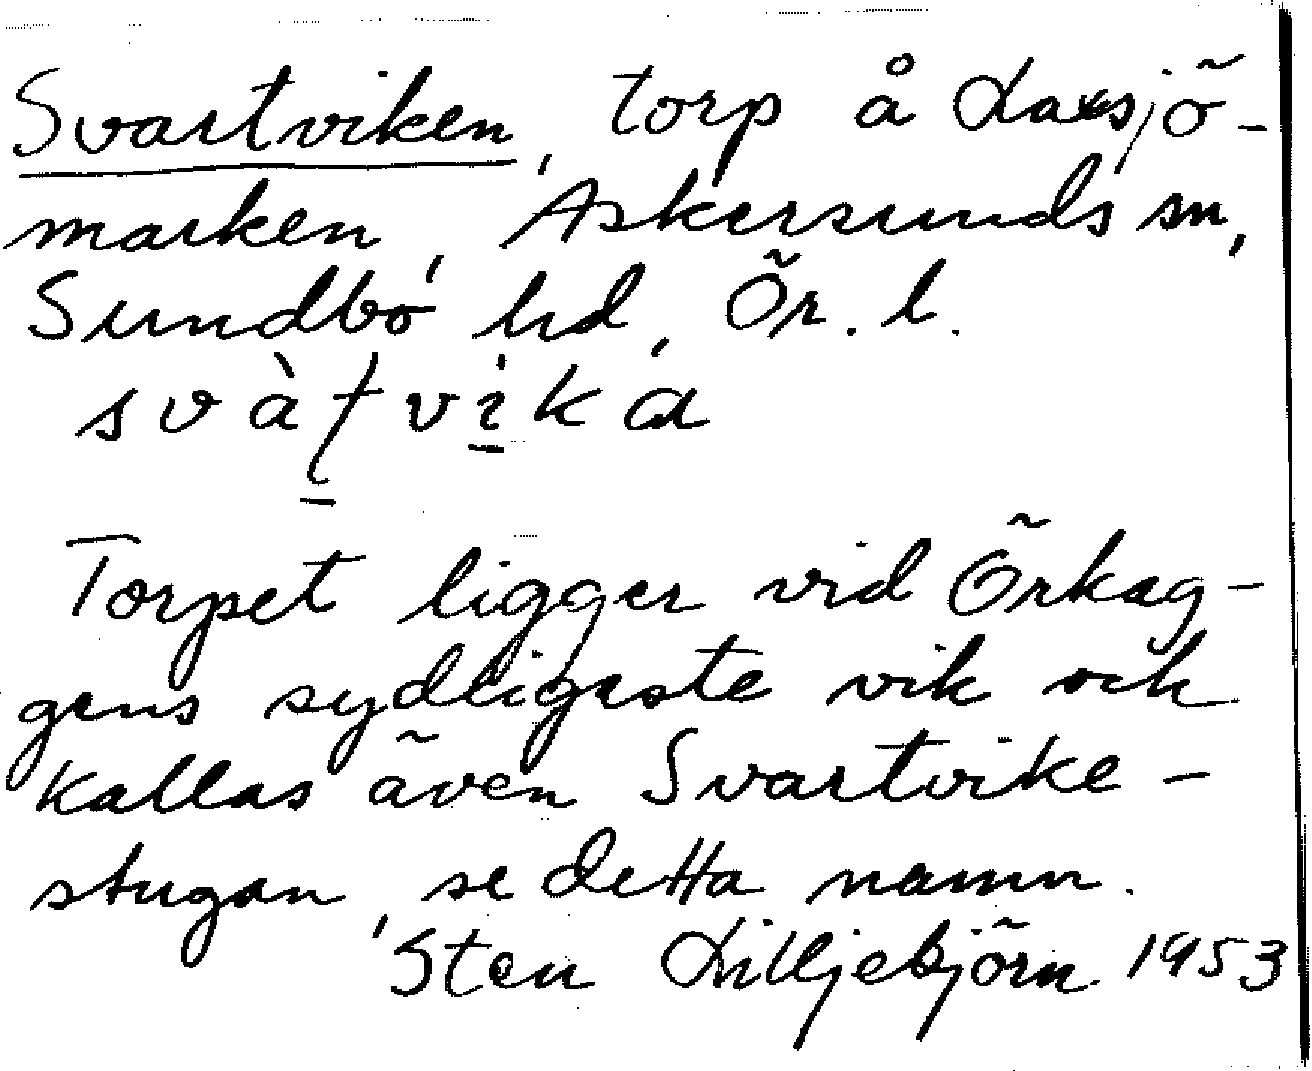 Svartviken, torp å Laxsjö-
marken, Askersunds sn,
Sundbo hd, Ör. l.
Torpet ligger vid Örkag-
gens sydligaste vik och
kallas även Svartvike-
stugan, se detta namn.
Sten Lilljebjörn 1953